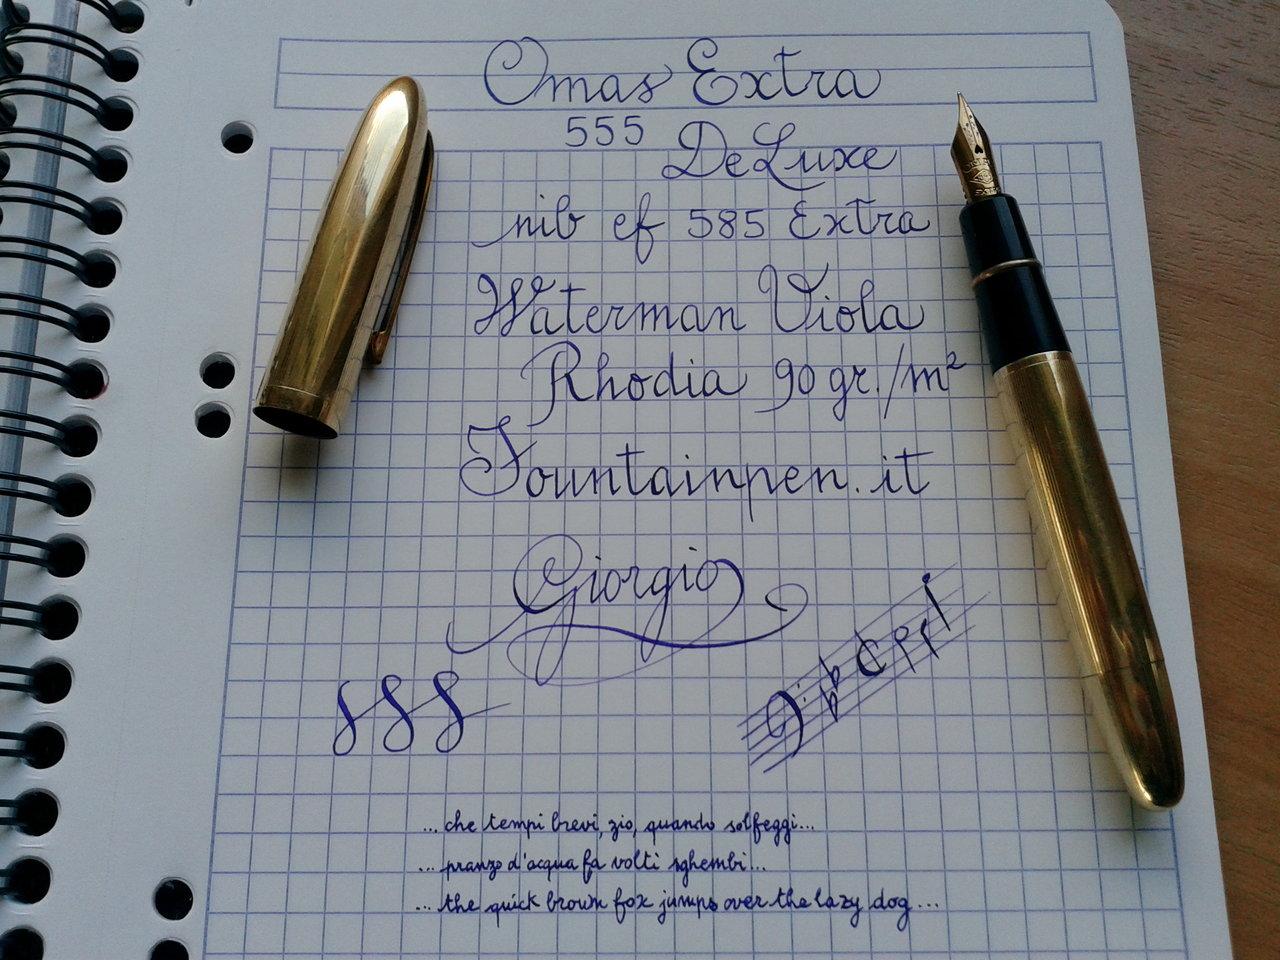 Omas Extra
555
DeLuxe
nib ef 585 Extra
Waterman Viola
Rhodia 90 gr./m²
Fountainpen.it
Giorgio
...che tempi brevi, zio, quando solfeggi...
...pranzo d'acqua fa volti sghembi...
...the quick brown fox jumps over the lazy dog...